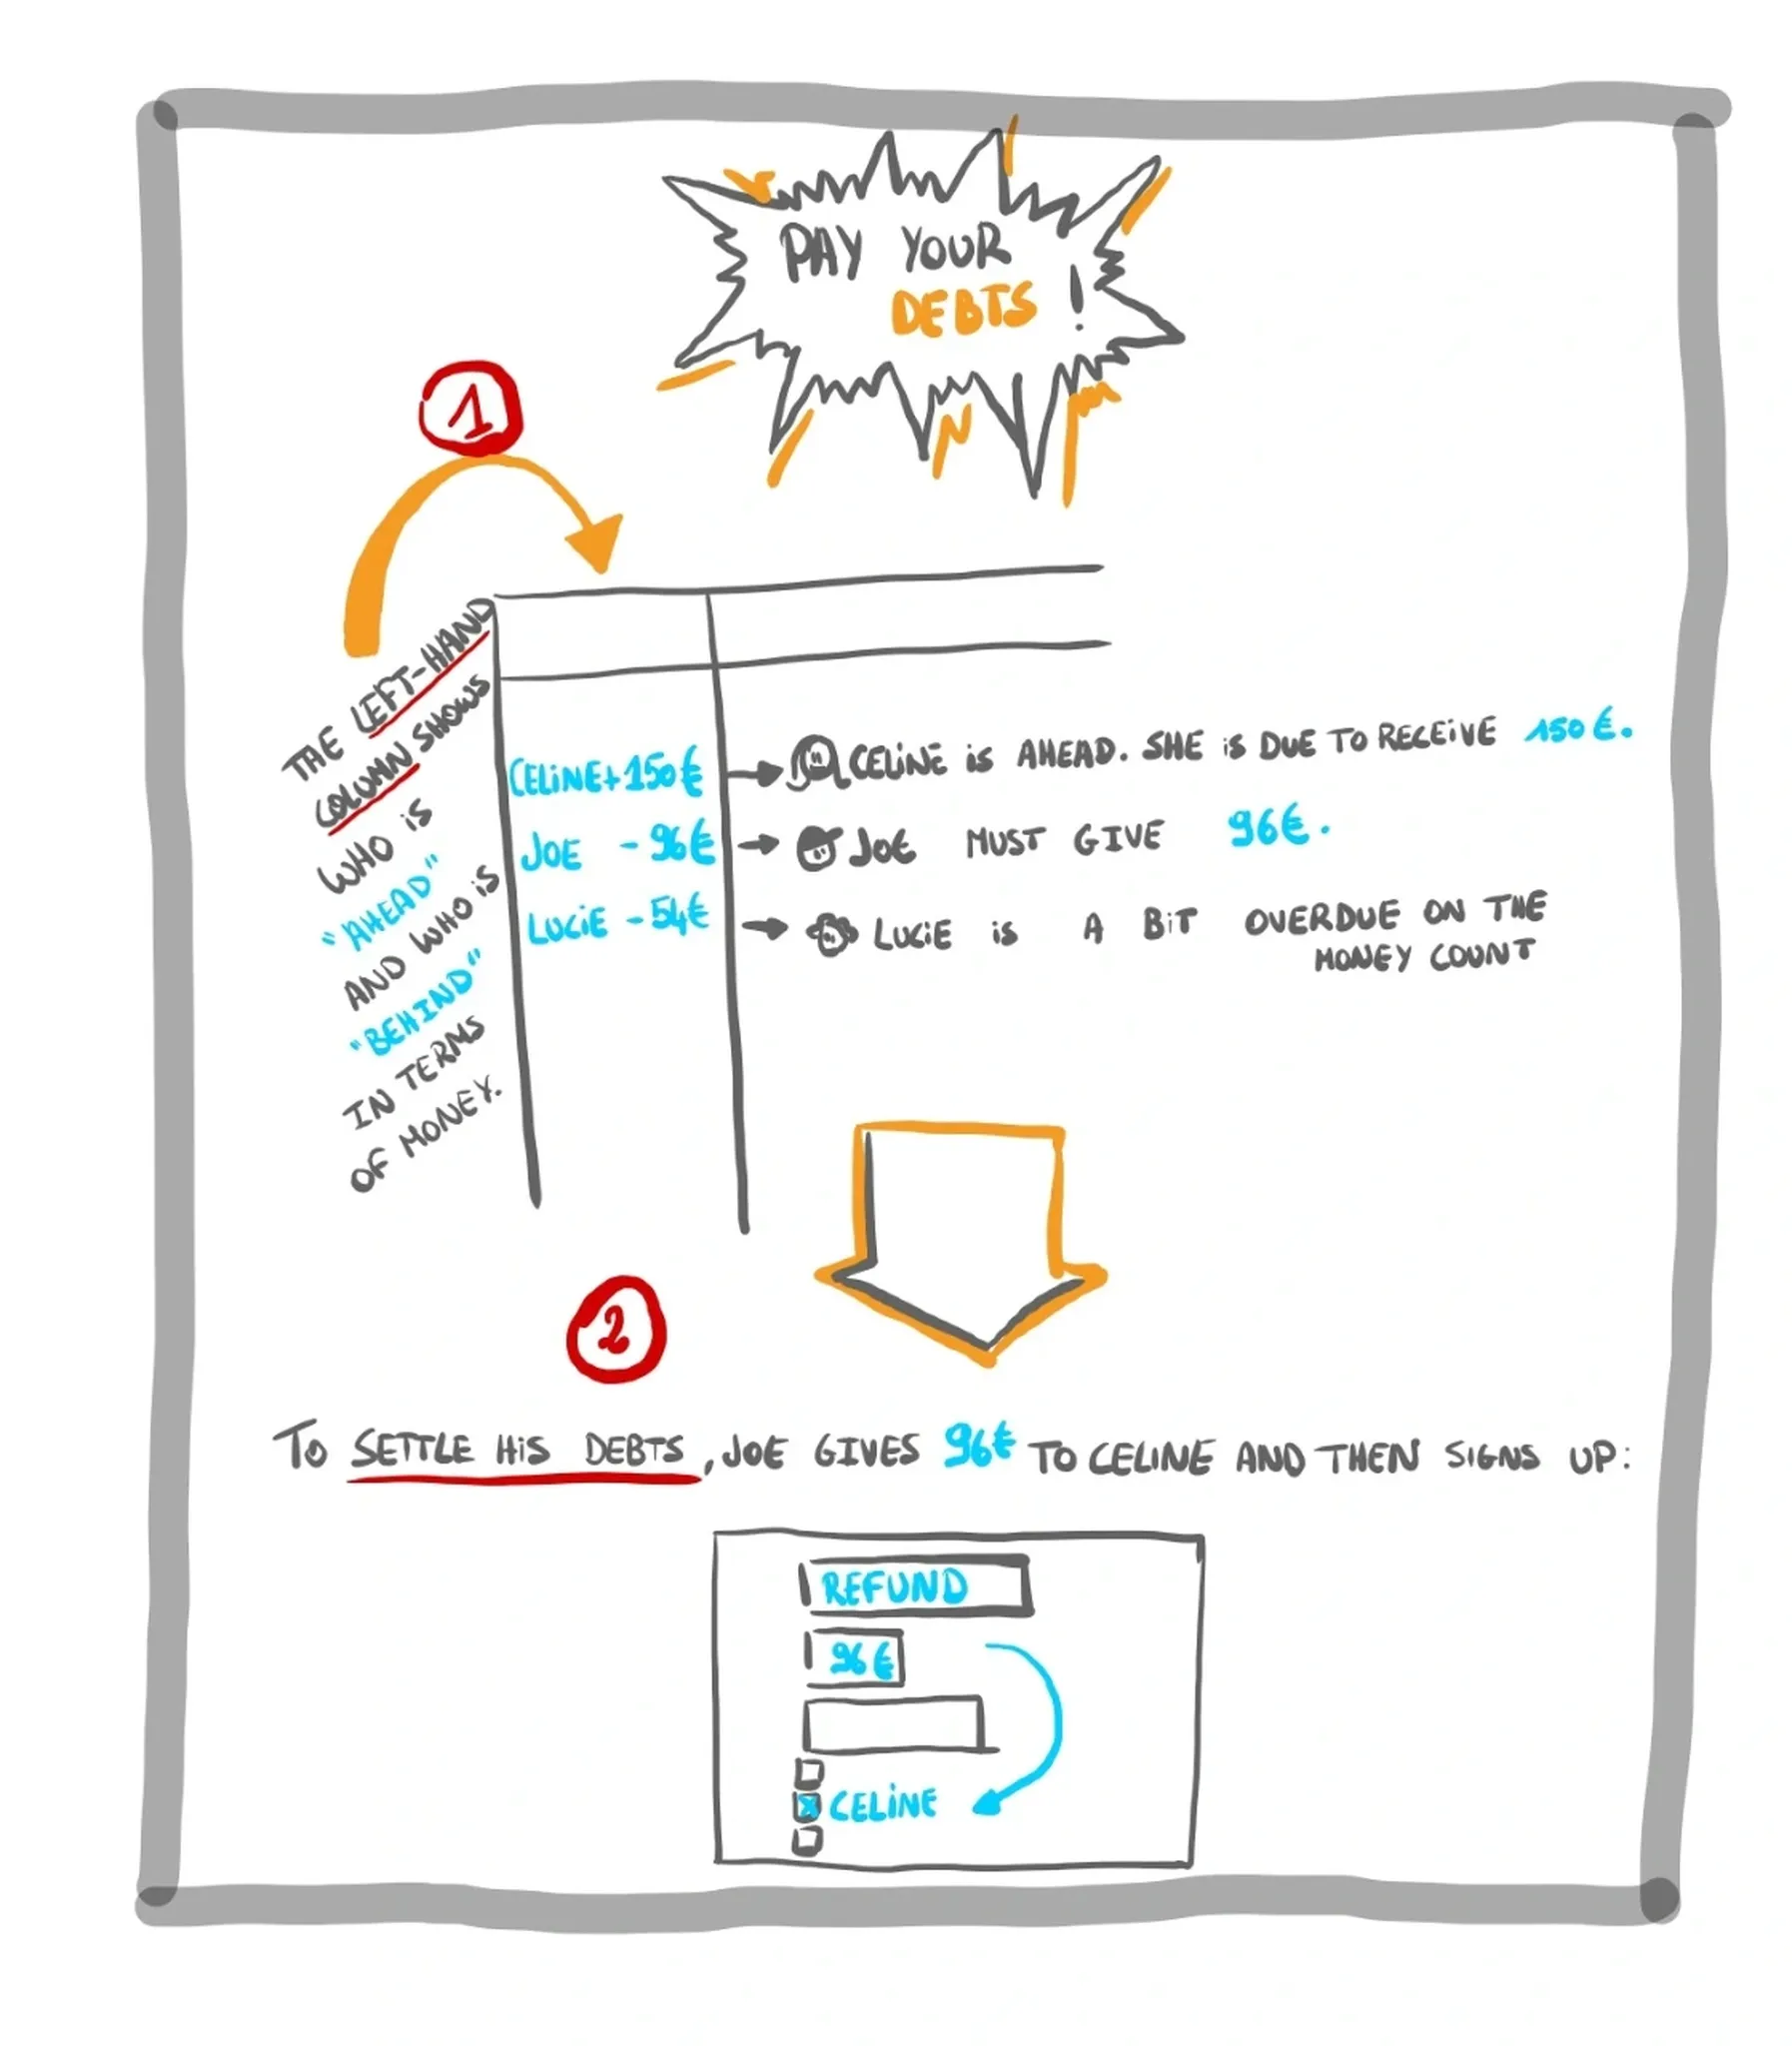 PAY YOUR
DEBTS !
1
THE LEFT-HAND
COLUMN SHOWS
WHO IS
"AHEAD"
AND WHO IS
"BEHIND"
IN TERMS
OF MONEY.
CELINE+150€
CELINE IS AHEAD. SHE IS DUE TO RECEIVE 150€.
JOE -96€
JOE MUST GIVE 96€.
LUCIE -54€
LUCIE IS A BIT OVERDUE ON THE
MONEY COUNT
2
TO SETTLE HIS DEBTS, JOE GIVES 96€ TO CELINE AND THEN SIGNS UP:
REFUND
96€
X CELINE